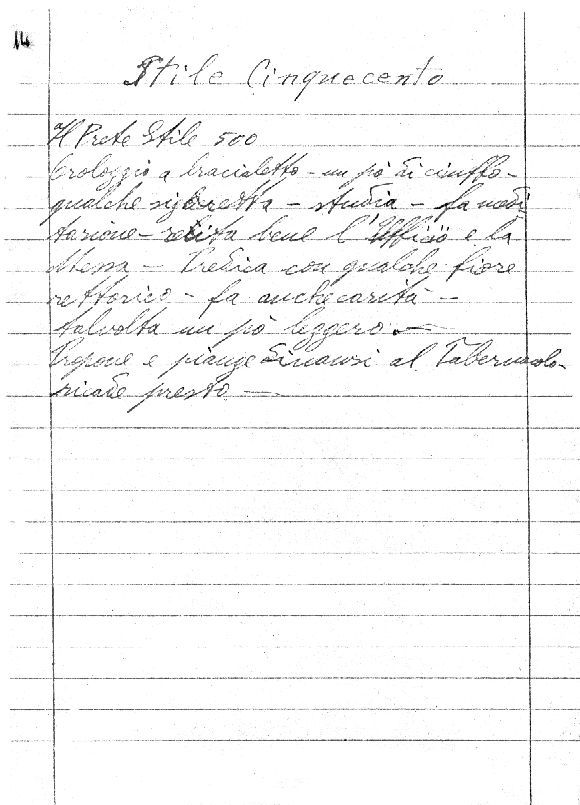 14
Stile Cinquecento
Il Prete Stile 500
Orologgio a bracialetto - un pò di ciuffo -
qualche sigaretta - studia - fa medi
tazione - recita bene l'Ufficio e la
Messa - Predica con qualche fiore
rettorico - fa anche carità -
talvolta un pò leggero. -
Propone e piange dinanzi al Tabernacolo -
ricade presto -